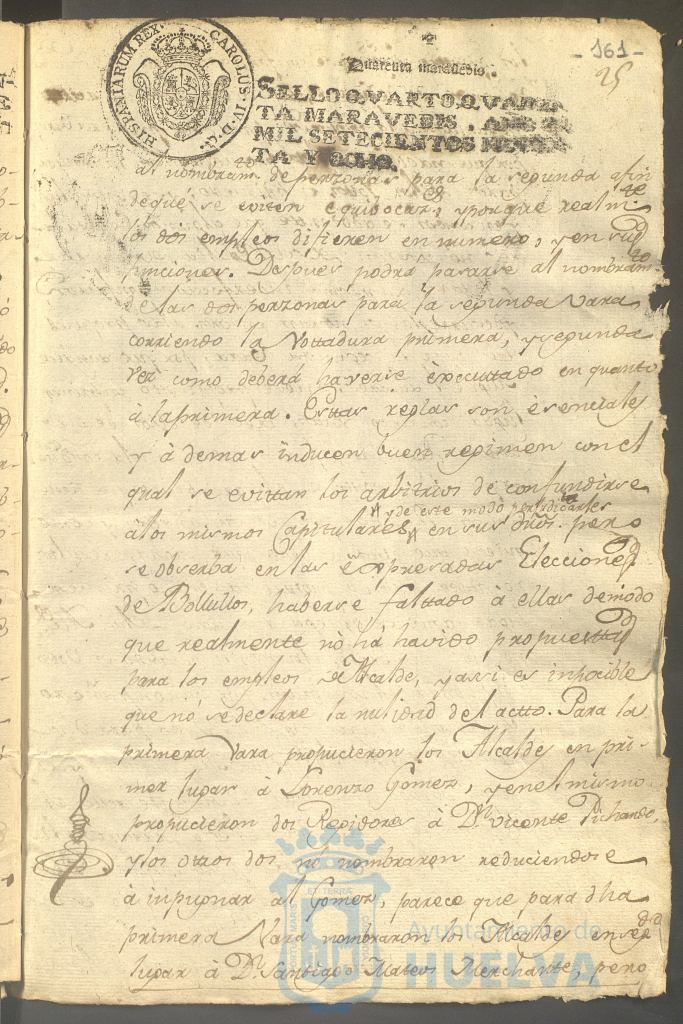 -161-
25
Quarenta maravedis.
HISPANIARUM REX. CAROLUS IV D. G.
SELLO QVARTO, QVAREN
TA MARAVEDIS, AÑO
MIL SETECIENTOS NOVEN
TA Y OCHO.
al nombram.to de perzonas para la segunda afin
dequé se eviten equibocac.s, yporque realm.te
los dos empleos difieren en numero, yen sus
funciones. Despues podrá pasarse al nombram.to
de las dos perzonas para la segunda vara
corriendo la Vottadura primera, ysegunda
vez como deberá haverse executtado en quanto
á laprimera. Esttas reglas son esenciales
y á demas inducen buen regimen con el
qual se evittan los arbitrios de confundirse
y de este modo perjudicarles
álos mismos Capitulares en sus dros. pero
se obserba en las expresadas Elecciones
de Bollullos, haberse falttado á ellas demodo
que realmente nó há havido propuesttas
para los empleos de Alcalde, yasi es inposible
que nó se declare la nulidad del actto. Para la
primera Vara propucieron los Alcaldes en pri-
mer lugar á Lorenzo Gomez, yenel mismo
propucieron dos Regidores á D.n Vicente Pichardo,
ylos ottros dos nó nombraron reduciendose
á inpugnar al Gomez, parece que para dha
primera Vara nombraron los Alcaldes en seg.do
lugar á D.n Santiago Mateos Merchante, pero
Ayuntamiento de
HUELVA